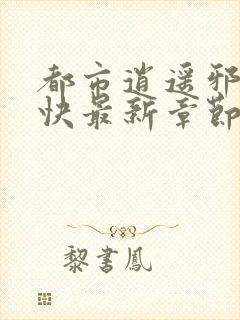 都市逍遥邪
快最新章節
黎書鳳